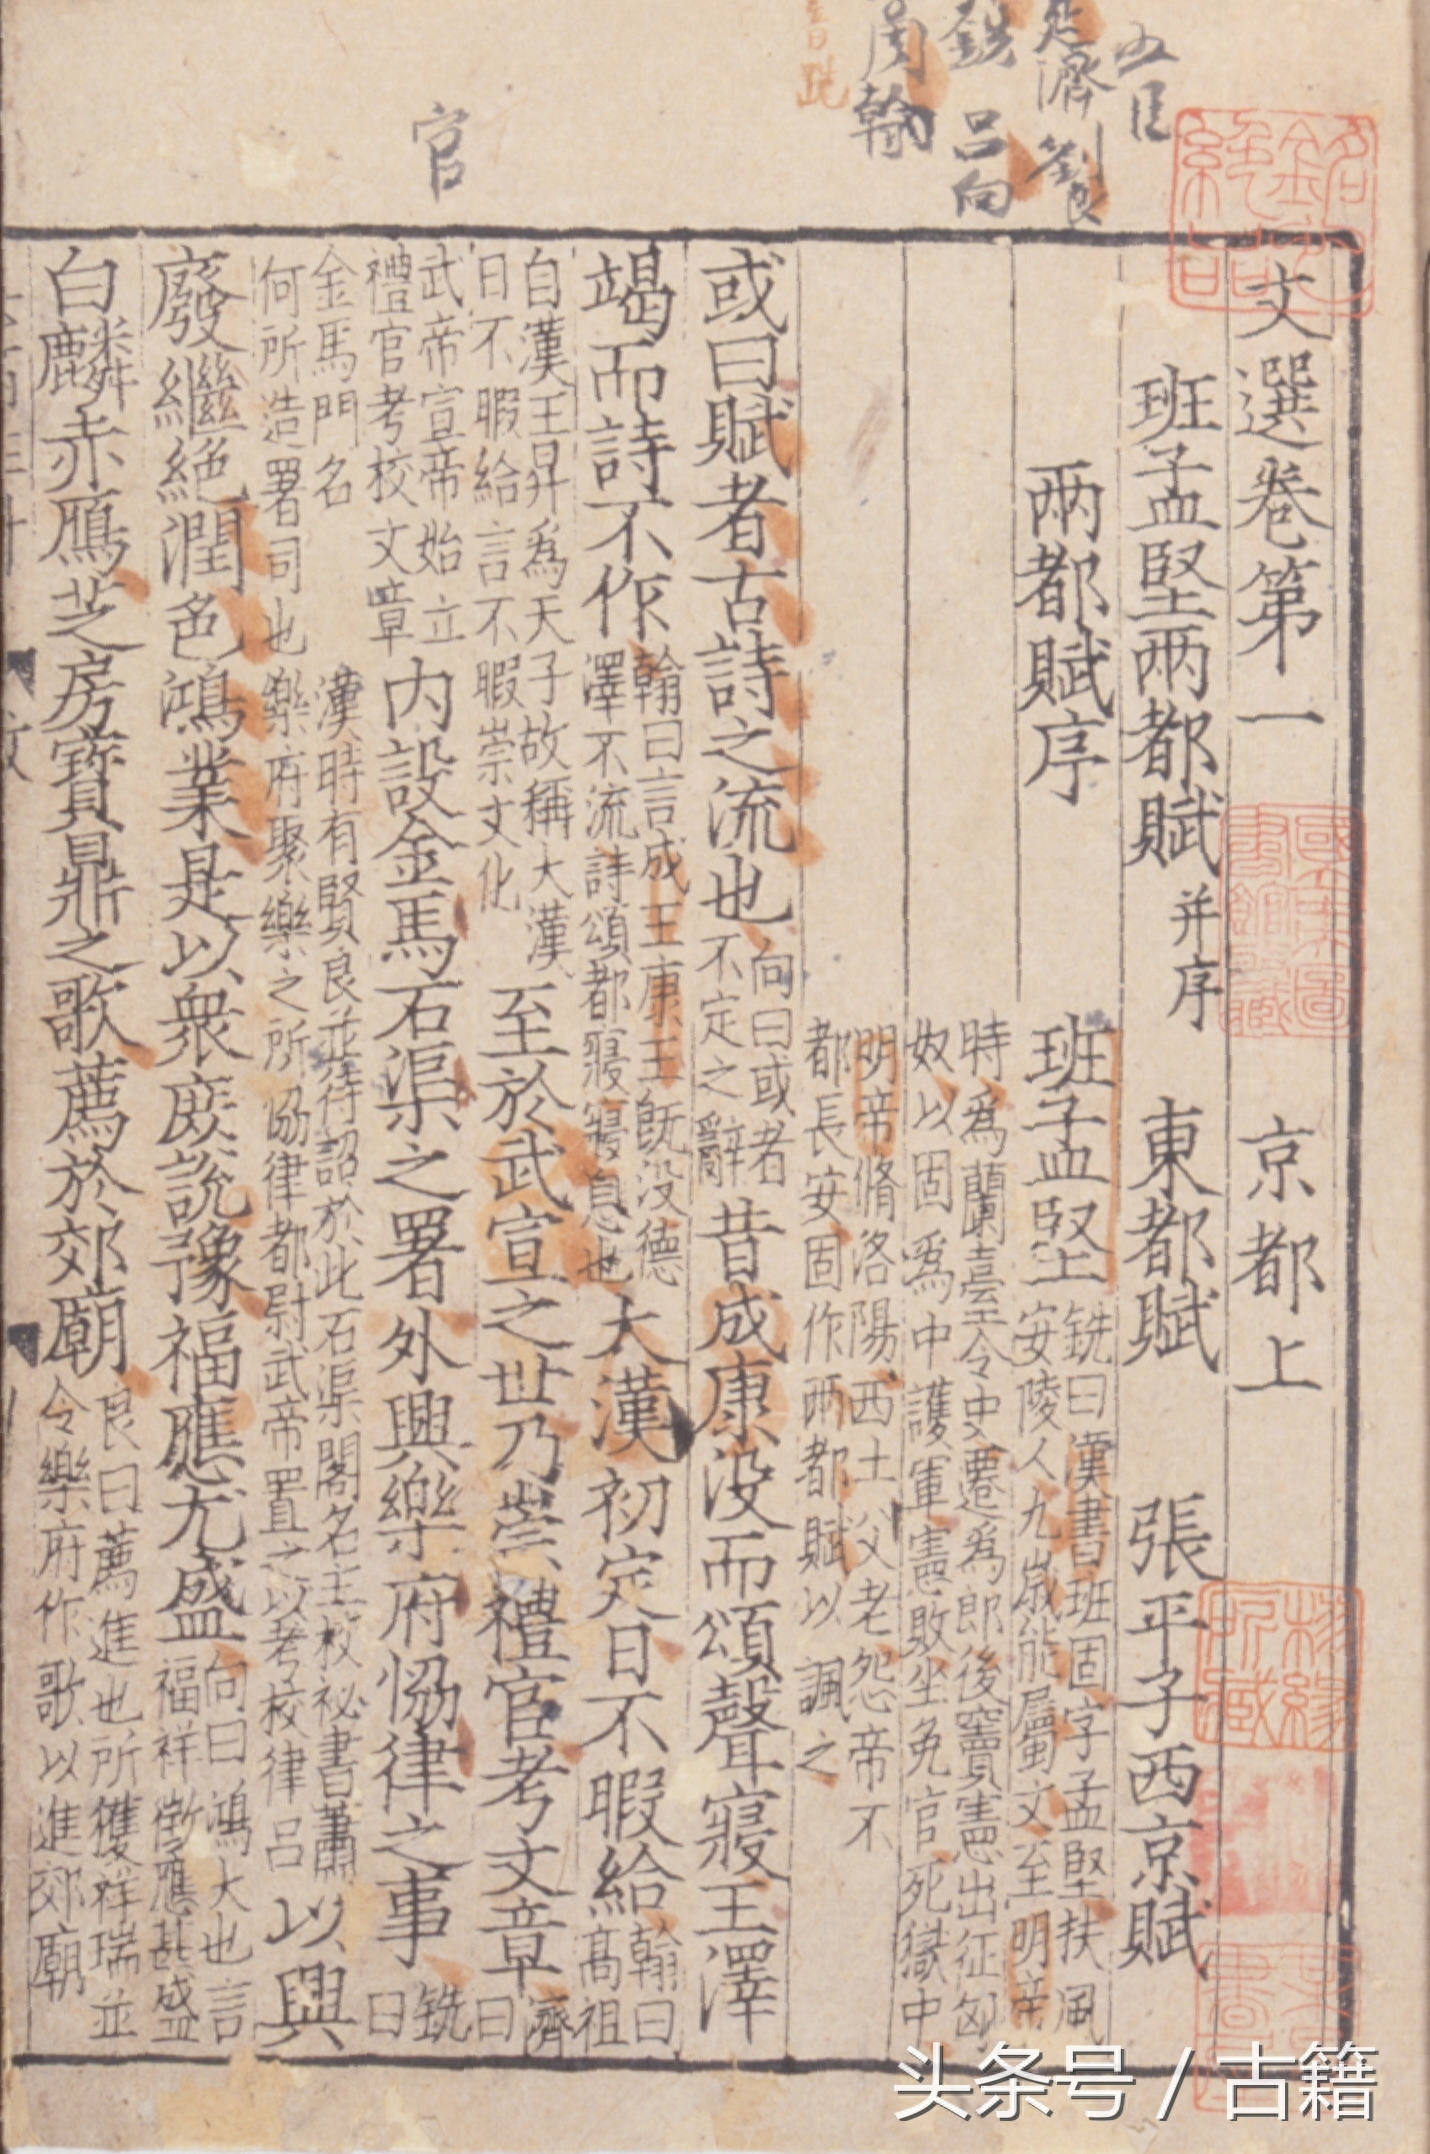 五臣
濟 劉良
銑 呂向
周翰
官
文選卷第一 京都上
班孟堅兩都賦 并序 東都賦 張平子西京賦
兩都賦序
班孟堅
銑曰漢書班固字孟堅扶風
安陵人九歲能屬文至明帝
時爲蘭臺令史遷爲郎後竇憲出征匈
奴以固爲中護軍憲敗坐免官死獄中
明帝脩洛陽西土父老怨帝不
都長安固作兩都賦以諷之
或曰賦者古詩之流也
向曰或者
不定之辭
昔成康沒而頌聲寢王澤
竭而詩不作
翰曰言成王康王旣没德
澤不流詩頌都寢寢息也
大漢初定日不暇給
翰曰
高祖
自漢王昇爲天子故稱大漢
日不暇給言不暇崇文化
至於武宣之世乃崇禮官考文章
濟
曰
武帝宣帝始立
禮官考校文章
内設金馬石渠之署外興樂府恊律之事
銑
曰
金馬門名
何所造署司也
漢時有賢良並待詔於此石渠閣名主校祕書蕭以
樂府聚樂之所恊律都尉武帝置之以考校律吕
以興
廢繼絶潤色鴻業是以衆庶説豫福應尤盛
向曰鴻大也言
福祥徵應甚盛
白麟赤鴈芝房寶鼎之歌薦於郊廟
良曰薦進也所獲祥瑞並
令樂府作歌以進郊廟
头条号 / 古籍